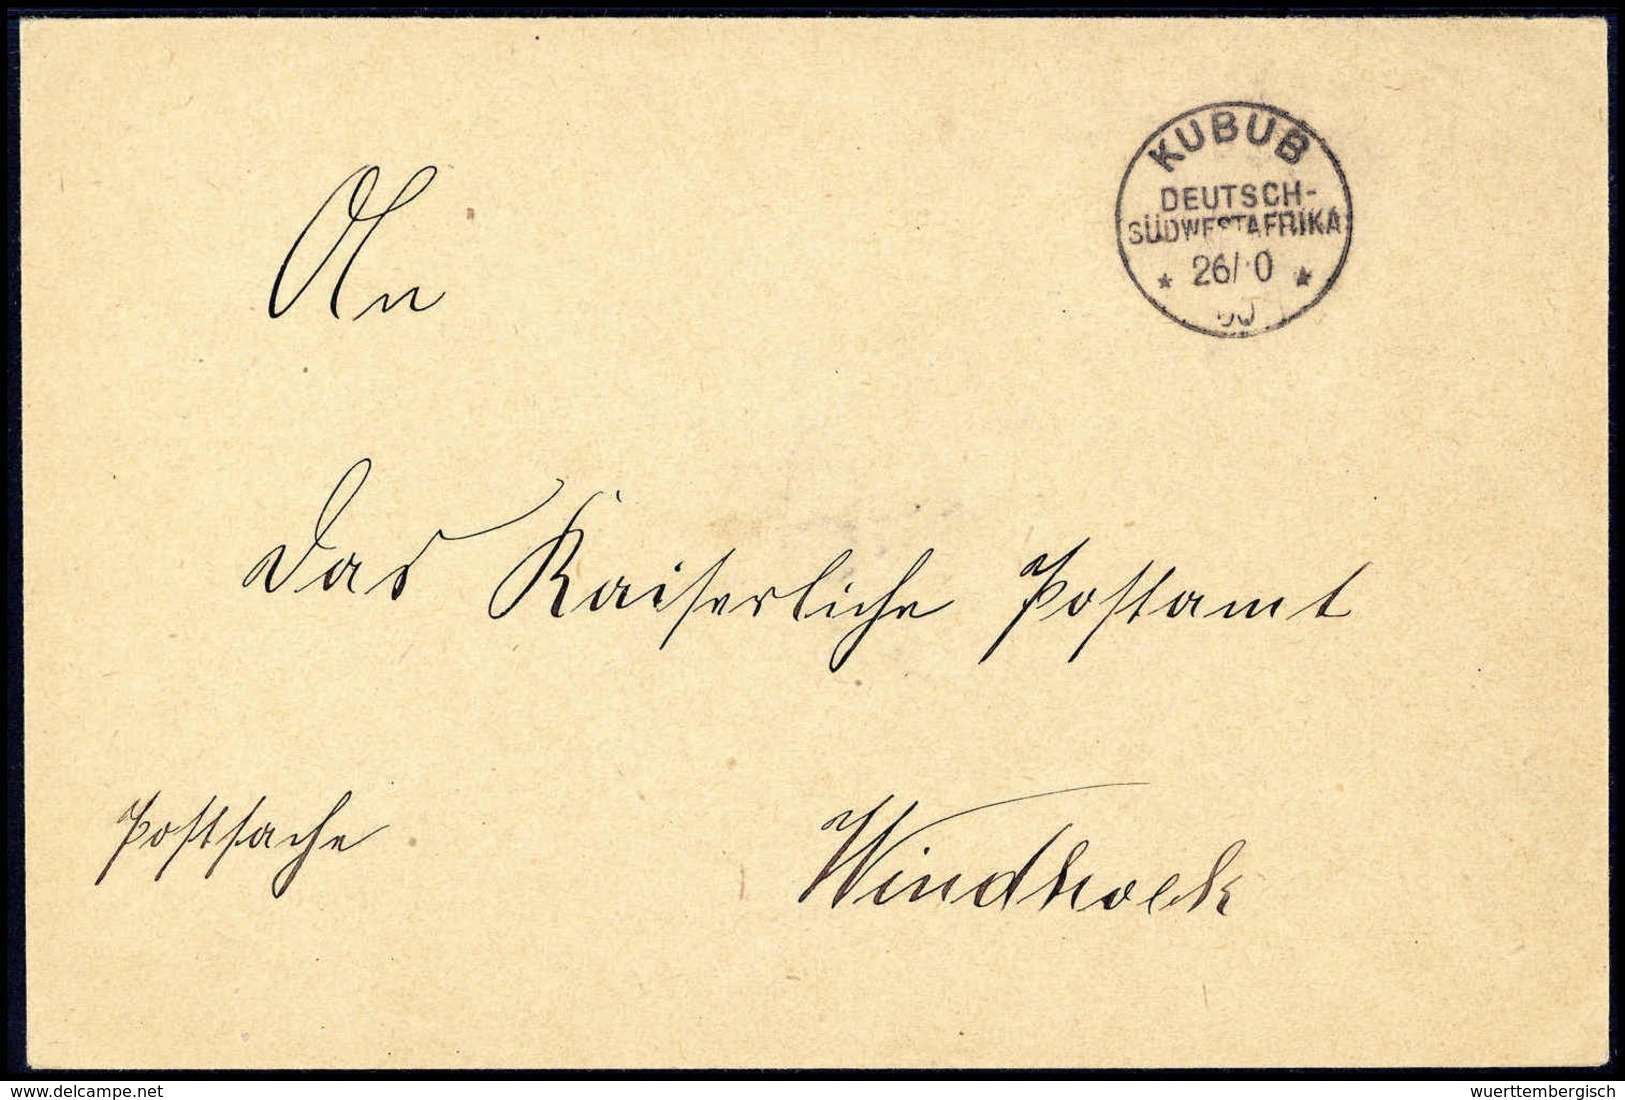 KUBUB
DEUTSCH-
SÜDWESTAFRIKA
An
das Kaiserliche Postamt
Postsache
Windhoek
www.delcampe.net
wuerttembergisch